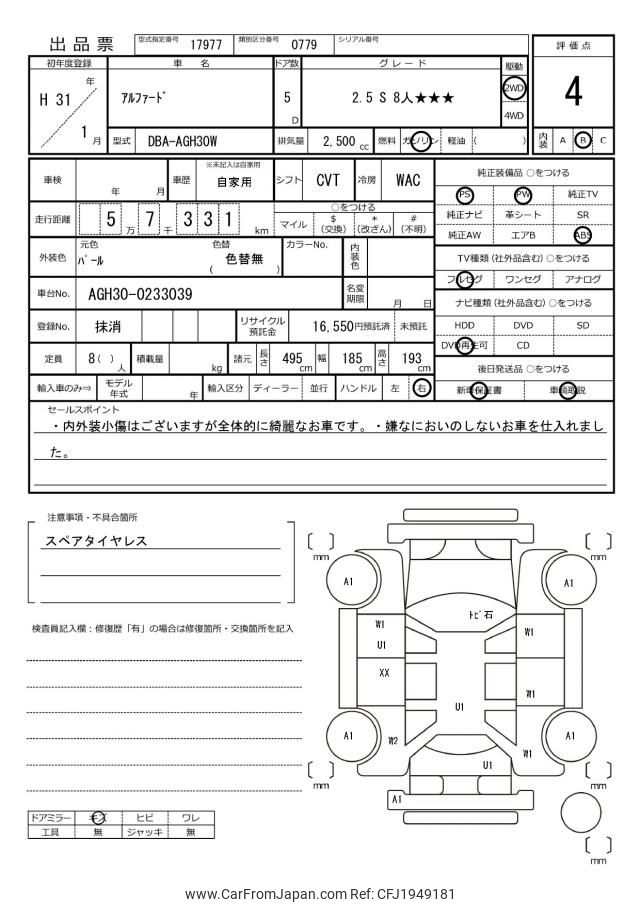 出品票 型式指定番号 17977 類別区分番号 0779 シリアル番号
評価点
4
内装 A B C
初年度登録 車名 ドア数 グレード 駆動
H 31 年 1 月
アルファード 5 D 2.5 S 8人★★★ 2WD 4WD
型式 DBA-AGH30W 排気量 2,500 cc 燃料 ガソリン 軽油 ( )
車検 年 月 車歴 ※未記入は自家用 自家用 シフト CVT 冷房 WAC
走行距離 5 万 7 千 3 3 1 km
○をつける
マイル $ (交換) * (改ざん) # (不明)
外装色 元色 パール 色替 ( 色替無 ) カラーNo. 内装色
車台No. AGH30-0233039 名変期限 月 日
登録No. 抹消 リサイクル預託金 16,550円預託済 未預託
定員 8( ) 人 積載量 kg 諸元 長さ 495 cm 幅 185 cm 高さ 193 cm
輸入車のみ⇒ モデル年式 年 輸入区分 ディーラー 並行 ハンドル 左 右
純正装備品 ○をつける
PS PW 純正TV
純正ナビ 革シート SR
純正AW エアB ABS
TV種類 (社外品含む) ○をつける
フルセグ ワンセグ アナログ
ナビ種類 (社外品含む) ○をつける
HDD DVD SD
DVD再生可 CD
後日発送品 ○をつける
新車保証書 車輌取説
セールスポイント
・内外装小傷はございますが全体的に綺麗なお車です。・嫌なにおいのしないお車を仕入れまし
た。
注意事項・不具合箇所
スペアタイヤレス
検査員記入欄：修復歴「有」の場合は修復箇所・交換箇所を記入
ドアミラー キズ ヒビ ワレ
工具 無 ジャッキ 無
mm
mm
A1
A1
トビ石
W1
U1
W1
XX
W1
U1
A1
W2
W1
A1
U1
mm
mm
A1
mm
www.CarFromJapan.com Ref: CFJ1949181